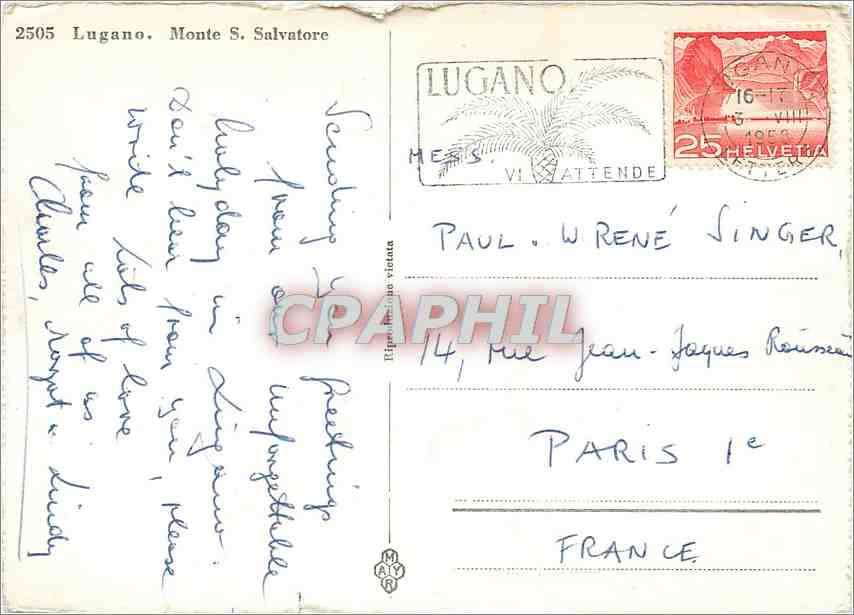 2505 Lugano. Monte S. Salvatore
Sending you greetings
from our unforgettable
holyday in Lugano.
Don't hear from you, please
write lots of love
from all of us
Charles, Margot u. Lindy
Riproduzione vietata
CPAPHIL
LUGANO
VI ATTENDE
16-17
3. VIII
25 HELVETIA
MESS.
PAUL. W RENÉ SINGER,
14, rue Jean-Jaques Rousseau
PARIS 1e
FRANCE
MAYR